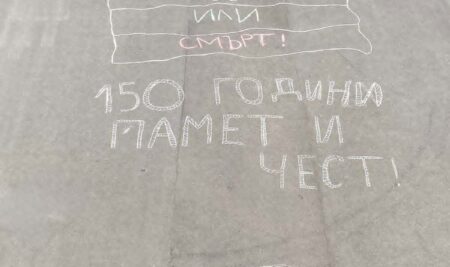 ИЛИ
СМЪРТ!
150 ГОДИНИ
ПАМЕТ И
ЧЕСТ!